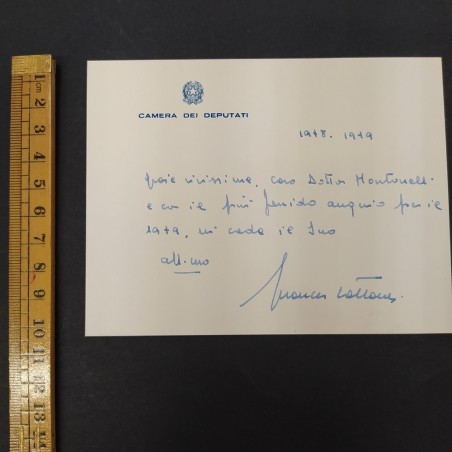 CAMERA DEI DEPUTATI
1978. 1979
Grazie vivissime, caro Dottor Montanelli
e con il più fervido augurio per il
1979, mi creda il Suo
aff.mo
1
2
3
4
5
6
7
8
9
10
11
12
13